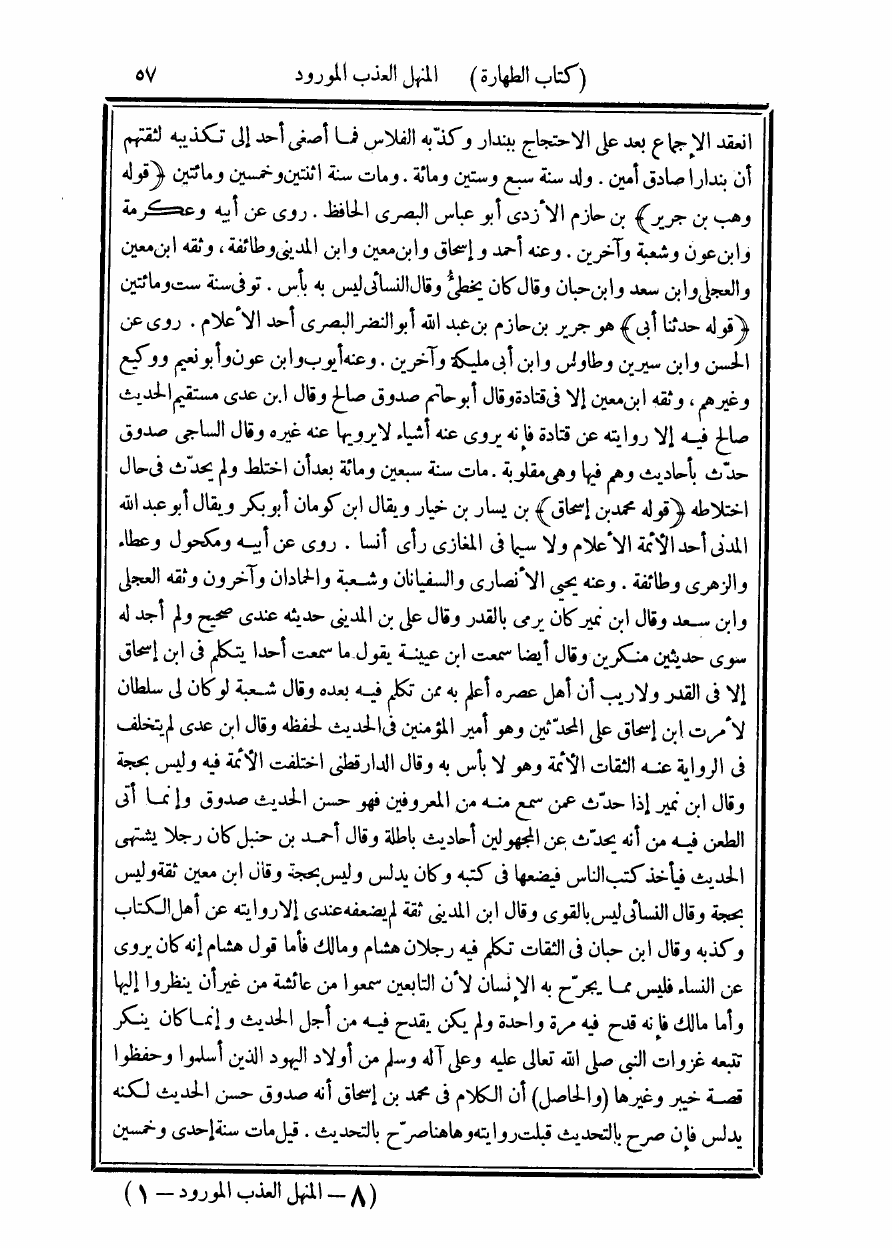 (كتاب الطهارة) المنهل العذب المورود ٥٧
انعقد الإجماع بعد على الاحتجاج ببندار وكذّبه الفلاس فما أصغى أحد إلى تكذيبه لثقتهم
أن بندارا صادق أمين . ولد سنة سبع وستين ومائة . ومات سنة اثنتين وخمسين ومائتين ﴿قوله
وهب بن جرير﴾ بن حازم الأزدى أبو عباس البصرى الحافظ . روى عن أبيه وعكرمة
وابن عون وشعبة وآخرين . وعنه أحمد وإسحاق وابن معين وابن المدينى وطائفة ، وثقه ابن معين
والعجلى وابن سعد وابن حبان وقال كان يخطئُ وقال النسائى ليس به بأس . توفى سنة ست ومائتين
﴿قوله حدثنا أبى﴾ هو جرير بن حازم بن عبد الله أبو النضر البصرى أحد الأعلام . روى عن
الحسن وابن سيرين وطاوس وابن أبى مليكة وآخرين . وعنه أيوب وابن عون وأبو نعيم ووكيع
وغيرهم ، وثقه ابن معين إلا فى قتادة وقال أبو حاتم صدوق صالح وقال ابن عدى مستقيم الحديث
صالح فيه إلا روايته عن قتادة فإنه يروى عنه أشياء لايرويها عنه غيره وقال الساجى صدوق
حدّث بأحاديث وهم فيها وهى مقلوبة . مات سنة سبعين ومائة بعد أن اختلط ولم يحدّث فى حال
اختلاطه ﴿قوله محمد بن إسحاق﴾ بن يسار بن خيار ويقال ابن كومان أبو بكر ويقال أبو عبد الله
المدنى أحد الأئمة الأعلام ولا سيما فى المغازى رأى أنسا . روى عن أبيه ومكحول وعطاء
والزهرى وطائفة . وعنه يحيى الأنصارى والسفيانان وشعبة والحمادان وآخرون وثقه العجلى
وابن سعد وقال ابن نمير كان يرمى بالقدر وقال على بن المدينى حديثه عندى صحيح ولم أجد له
سوى حديثين منكرين وقال أيضا سمعت ابن عيينة يقول ما سمعت أحدا يتكلم فى ابن إسحاق
إلا فى القدر ولاريب أن أهل عصره أعلم به ممن تكلم فيه بعده وقال شعبة لو كان لى سلطان
لأمرت ابن إسحاق على المحدّثين وهو أمير المؤمنين فى الحديث لحفظه وقال ابن عدى لم يتخلف
فى الرواية عنه الثقات الأئمة وهو لا بأس به وقال الدارقطنى اختلفت الأئمة فيه وليس بحجة
وقال ابن نمير إذا حدّث عمن سمع منه من المعروفين فهو حسن الحديث صدوق وإنما أتى
الطعن فيه من أنه يحدّث عن المجهولين أحاديث باطلة وقال أحمد بن حنبل كان رجلا يشتهى
الحديث فيأخذ كتب الناس فيضعها فى كتبه وكان يدلس وليس بحجة وقال ابن معين ثقة وليس
بحجة وقال النسائى ليس بالقوى وقال ابن المدينى ثقة لم يضعفه عندى إلا روايته عن أهل الكتاب
وكذبه وقال ابن حبان فى الثقات تكلم فيه رجلان هشام ومالك فأما قول هشام إنه كان يروى
عن النساء فليس مما يجرّح به الإنسان لأن التابعين سمعوا من عائشة من غير أن ينظروا إليها
وأما مالك فإنه قدح فيه مرة واحدة ولم يكن يقدح فيه من أجل الحديث وإنما كان ينكر
تتبعه غزوات النبى صلى الله تعالى عليه وعلى آله وسلم من أولاد اليهود الذين أسلموا وحفظوا
قصة خيبر وغيرها (والحاصل) أن الكلام فى محمد بن إسحاق أنه صدوق حسن الحديث لكنه
يدلس فإن صرح بالتحديث قبلت روايته وهاهنا صرّح بالتحديث . قيل مات سنة إحدى وخمسين
(٨ – المنهل العذب المورود – ١)